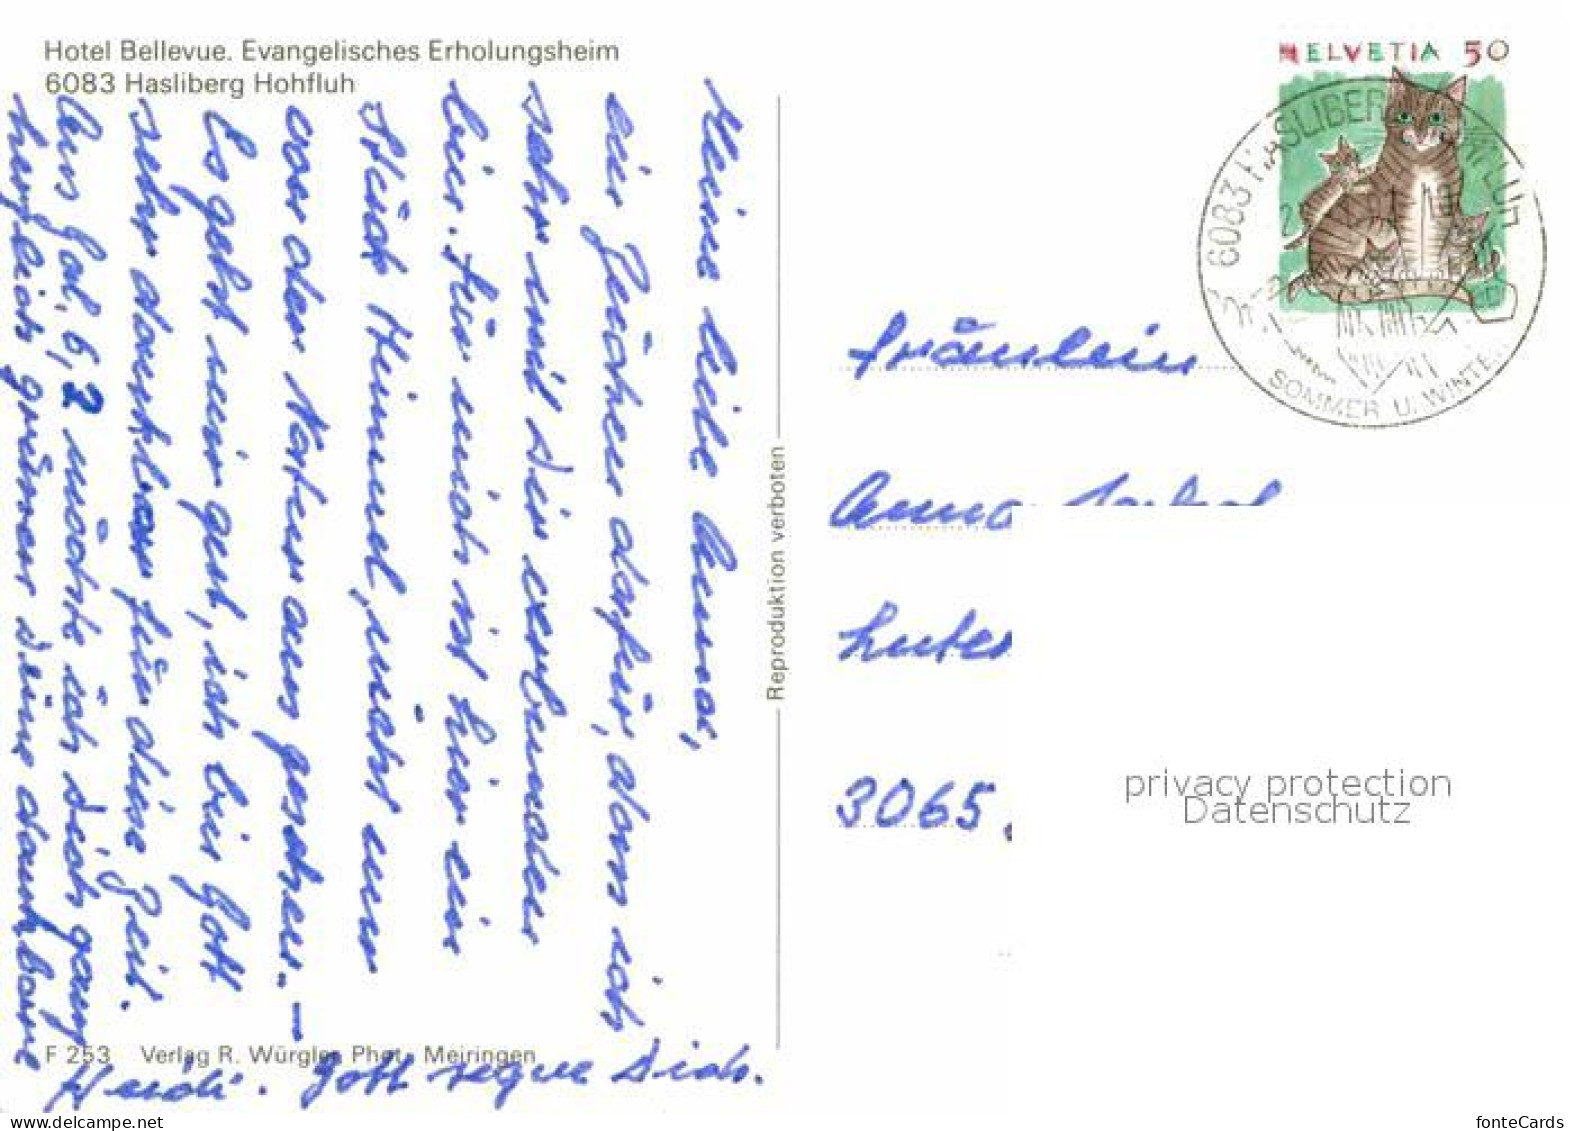 Hotel Bellevue. Evangelisches Erholungsheim
6083 Hasliberg Hohfluh
Meine liebe Anna,
ein Zeichen dafür, dass ich
sehr mit Dir verbunden
bin. Für mich ist hier ein
Stück Himmel, nicht nur
von der Natur aus gesehen. –
Es geht mir gut, ich bin Gott
sehr dankbar für diese Zeit.
Aus Gal. 6, 2 möchte ich Dich ganz
herzlich grüssen Deine dankbare
Heidi. Gott segne Dich.
F 253 Verlag R. Würgler Phot. Meiringen
Reproduktion verboten
HELVETIA 50
6083 HASLIBERG HOHFLUH
SOMMER U. WINTER
Fräulein
Anna
3065
privacy protection
Datenschutz
www.delcampe.net
fonteCards